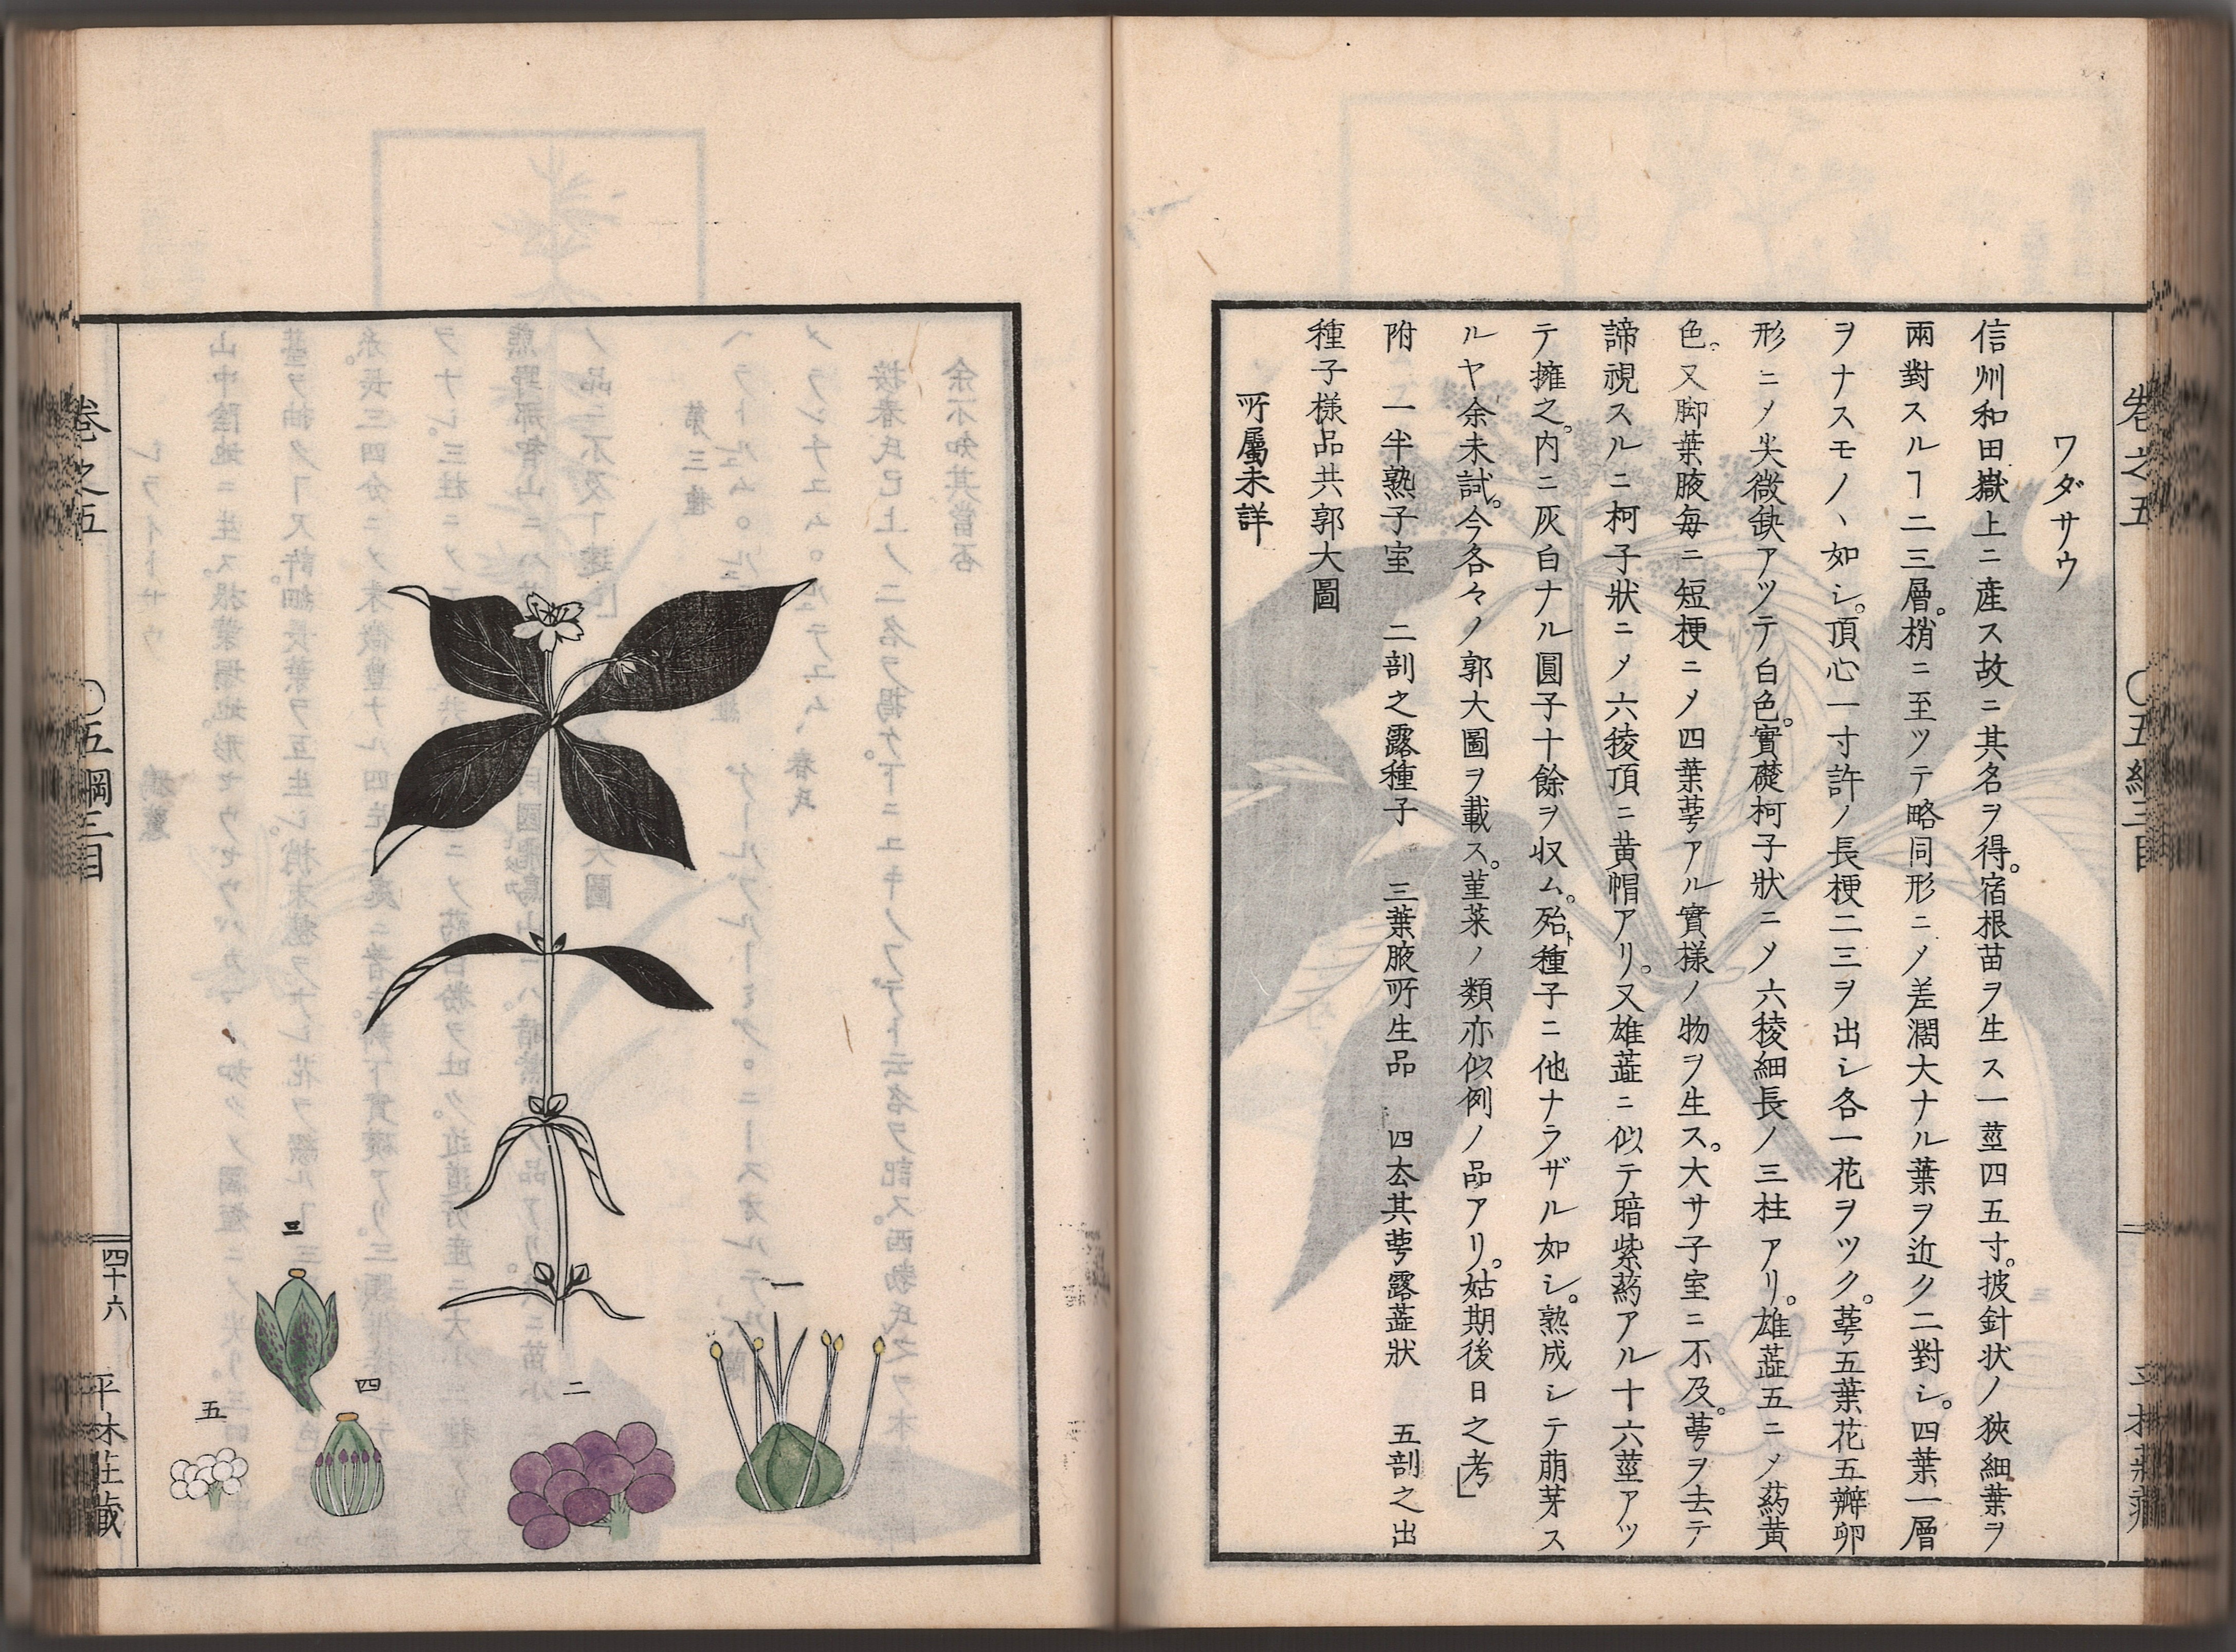 巻之五
〇五綱三目
ワダサウ
信州和田嶽上ニ産ス故ニ其名ヲ得。宿根苗ヲ生ス一莖四五寸。披針状ノ狹細葉ヲ
兩對スルヿ二三層。梢ニ至ツテ略同形ニノ差濶大ナル葉ヲ近ク二對シ。四葉一層
ヲナスモノヽ如シ。頂心一寸許ノ長梗二三ヲ出シ各一花ヲツク。萼五葉花五瓣卵
形ニノ尖微缺アツテ白色。實礎柯子狀ニノ六稜細長ノ三柱アリ。雄蕋五ニノ葯黄
色。又脚葉腋毎ニ短梗ニノ四葉萼アル實様ノ物ヲ生ス。大サ子室ニ不及。萼ヲ去テ
諦視スルニ柯子狀ニノ六稜頂ニ黄帽アリ。又雄蕋ニ似テ暗紫葯アル十六莖アツ
テ擁之。内ニ灰白ナル圓子十餘ヲ収ム。殆ト種子ニ他ナラザル如シ。熟成シテ萠芽ス
ルヤ余未試。今各々ノ郭大圖ヲ載ス。菫菜ノ類亦似例ノ品アリ。姑期後日之考」
附 一半熟子室 二剖之露種子 三葉腋所生品 四厺其萼露蕋狀 五剖之出
種子様品共郭大圖
所屬未詳
一
二
三
四
五
巻之五
〇五綱三目
四十六
平林莊藏